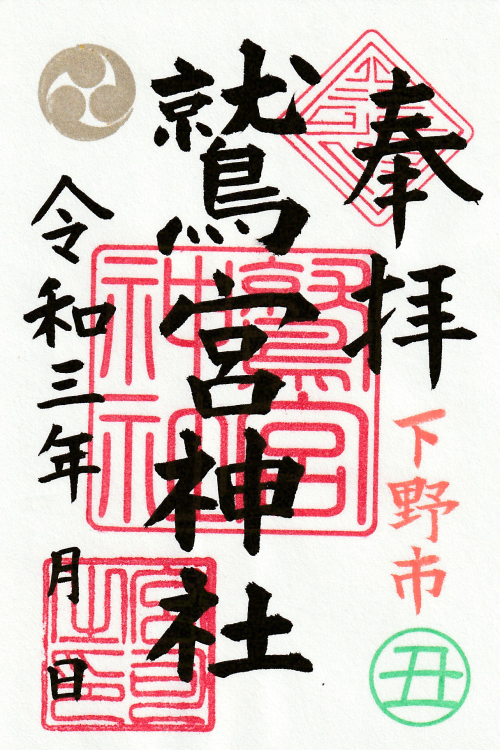 奉拝
下野市
丑
鷲宮神社
令和三年 月 日
鷲宮
神社
宮司
之印